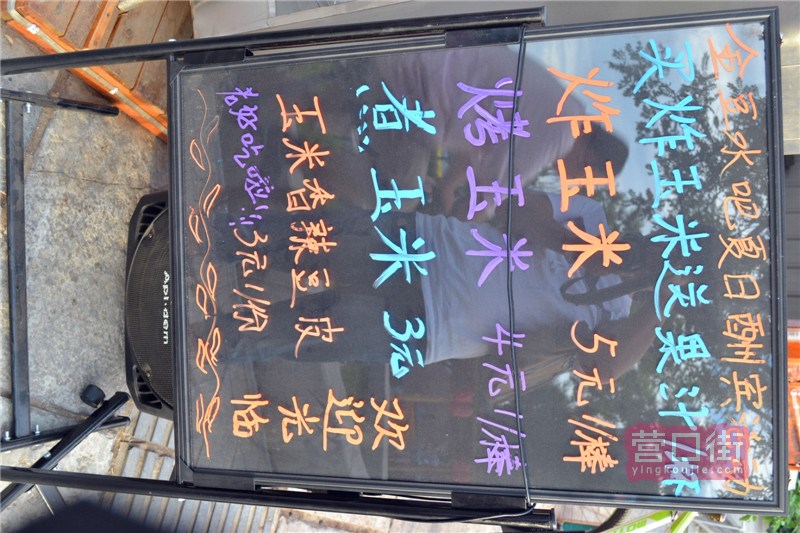 金豆水吧夏日酬宾
买炸玉米送果汁杯
炸玉米 5元/棒
烤玉米 4元/棒
煮玉米 3元
玉米香辣豆皮
老好吃啦!! 3元/份
欢迎光临
营口街
yingkoujie.com